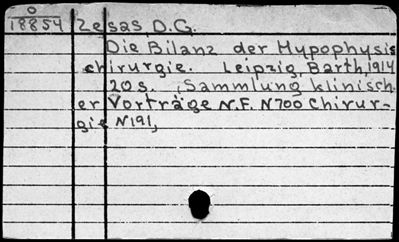 O
18854 Zesas, D.G.
Die Bilanz der Hypophysis
chirurgie. Leipzig, Barth, 1914
20 s. (Sammlung klinisch
er Vorträge N.F. N700 Chirur-
gie N191,